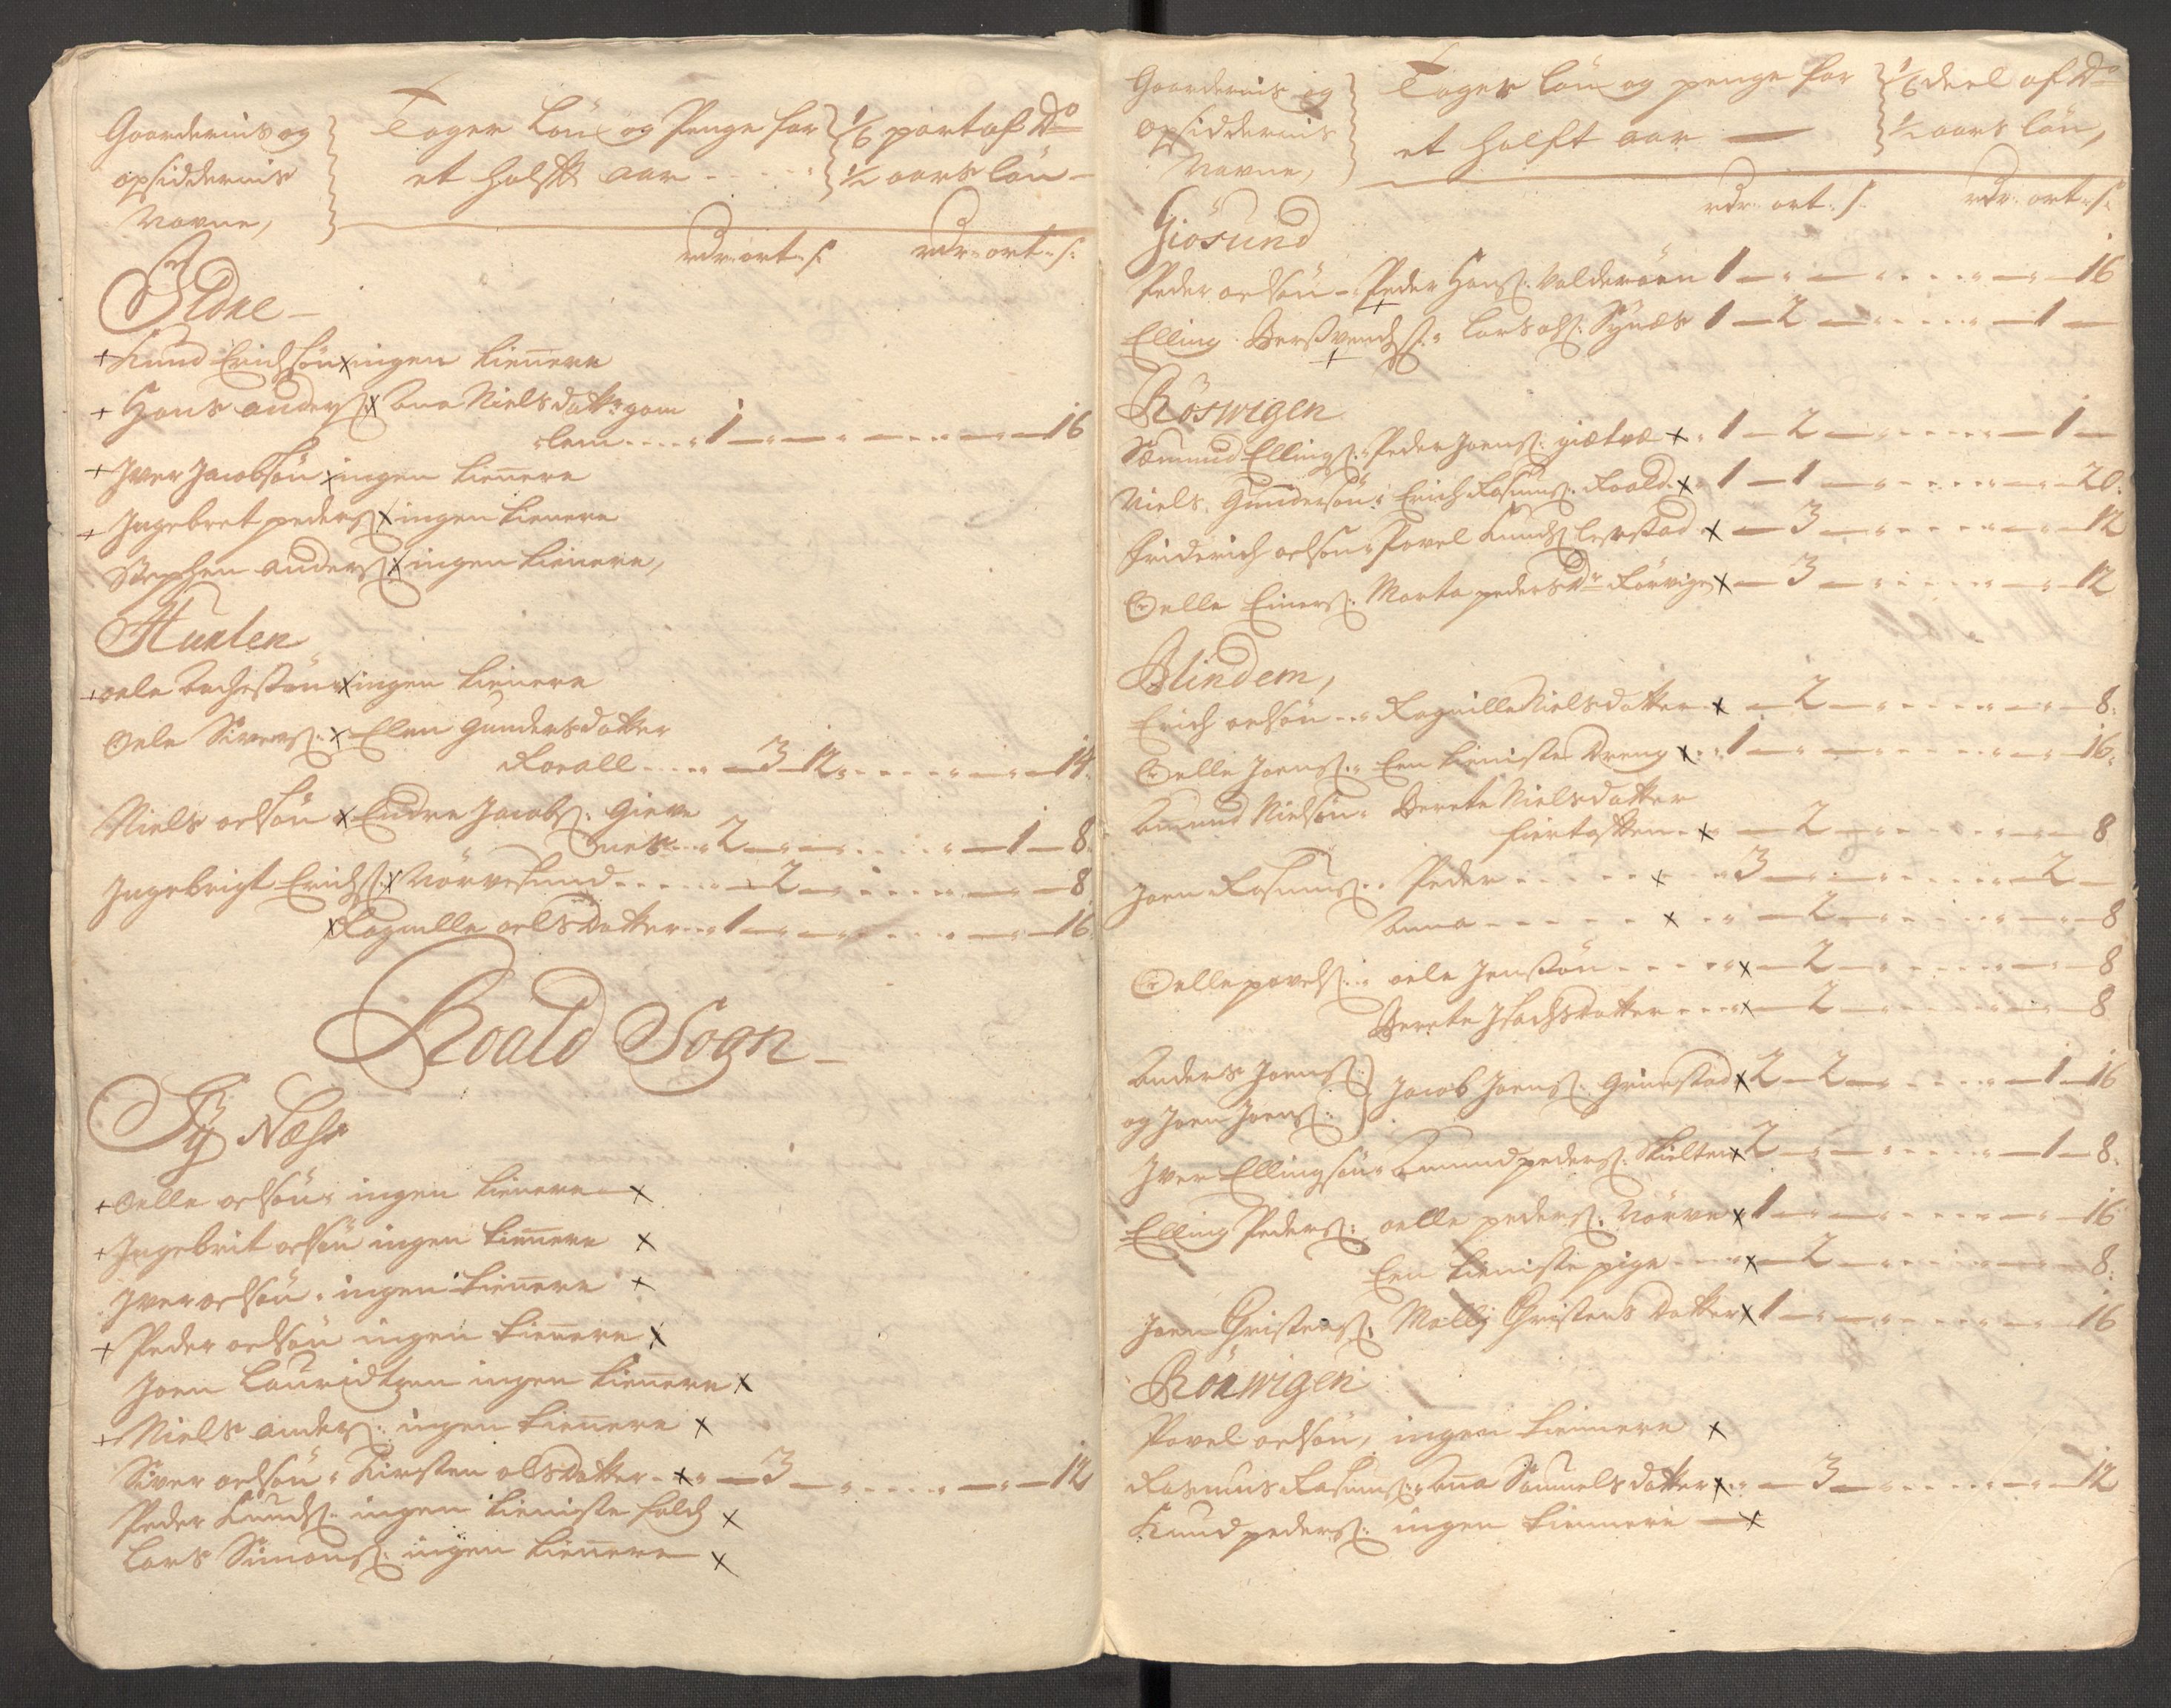 Gaardernis og
opsiddernis
Navne,
Tager Lön og Penge for
et halft aar
1/6 part af Do
1/2 aars lön
rdr: ort: s:
rdr: ort: s:
Eldne
+ Knud Erichsön x ingen tienere
+ Hans anders: x Ana Nielsdatter gam
lem 1 16
+ Iver Jacobsön x ingen tienere
+ Ingebret peders: x ingen tienere
Stephen anders: x ingen tienere,
Hunlen
+ oele x ingen tienere
Oele Sivers: x Ellen Gundersdatter
Roeall 3 12 14
Niels oelsön x Endre Jacobs: Gieve
2 1 8
Ingebrigt Erichs: x Nörvesund 2 8
x Ragnille oelsdatter 1 16
Roald Sogn
Sy Næss
+ Oelle oelsön ingen tienere x
+ Ingebrit oelsön ingen tienere x
Iver oelsön ingen tienere x
+ Peder oelsön ingen tienere x
Joen Lauridtzen ingen tienere x
+ Niels anders: ingen tienere x
Siver oelsön Kirsten olsdatter x 3 12
Peder Knuds: ingen tieniste folch x
Lars Simons: ingen tienere x
Gaardernis og
opsiddernis
Navne,
Tager lön og penge for
et halft aar
1/6 deel af Do
1/2 aars lön,
rdr: ort: s:
rdr: ort: s:
Giösund
Peder oelsön Peder Hans: Valderöen 1 16
Elling Lars ols: Synæs 1 2 1
Röswigen
Sæmund Ellings: Peder Joens: x 1 2 1
Niels Gundersön Erich Rasmus: Roald x 1 1 20
Friderich oelsön Povel Knuds: Lerstad x 3 12
Oelle Einers: Marta pedersdr Rörvigen x 3 12
Blindem,
Erich oelsön Ragnille Nielsdatter x 2 8
Oelle Joens: Een tieniste Dreng x 1 16
Amund Nielsön Berete Nielsdatter
x 2 8
Joen Rasmus: Peder x 3 2
Anna x 2 8
Oelle povels: oele Jenssön x 2 8
Berete Isachsdatter x 2 8
Anders Joens:
og Joen Joens: } Jacob Joens: Grinstad x 2 2 1 16
Iver Ellingsön Amund peders: Skielten x 2 1 8
Elling Peders: oelle peders: Nörve x 1 16
Een tieniste pige x 2 8
Joen Christens: Malli Christens datter x 1 16
Rönwigen
Povel oelsön, ingen tiennere x
Rasmus Rasmus: Ana Samuelsdatter x 3 12
Knud peders: ingen tiennere x